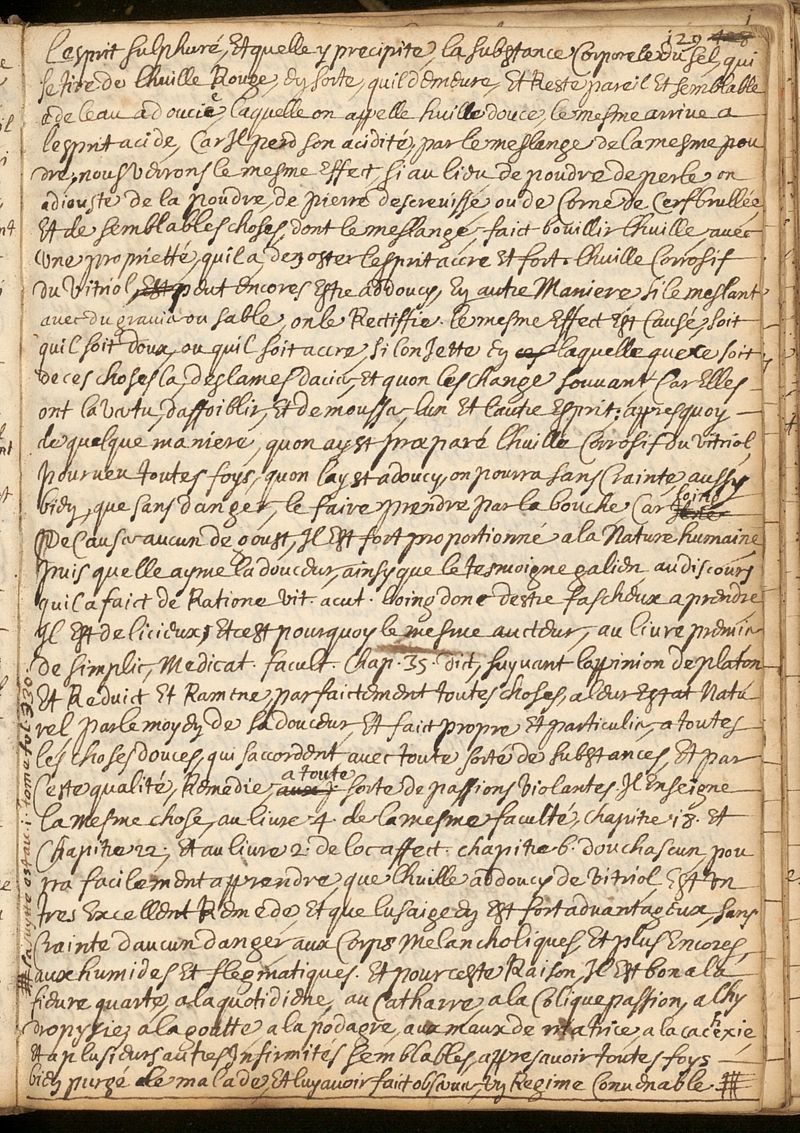 1
129
lesprit sulphuré, Et quelle y precipite, la substance Corporele du sel, qui
se tire de lhuille Rouge, En sorte, quil demeure, Et Reste pareil Et semblable
a de leau adoucie, laquelle on appelle huille douce, le mesme arrive a
lesprit acide, Car Il perd son acidité, par le meslange de la mesme pou
dre, nous verrons le mesme Effect, si au lieu de poudre de perle on
adiouste de la poudre, de pierre descrevisse ou de Corne de Cerf brullée
Et de semblables choses, dont le meslange, faict bouillir lhuille avec
Une proprietté, quil a de oster lesprit accre Et fort. lhuille Corrosif
du vitriol, Est peut Encores Estre addoucy, En autre Maniere si le meslant
avec du gravier ou sable, on le Rectiffie. le mesme Effect Est Causé, soit
quil soit doux, ou quil soit accre, si lon Jette En ces laquelle que ce soit
de ces choses la, des lames dacier, Et quon les change souvant Car Elles
ont la vertu, daffoiblir, Et demousser, lun Et lautre Esprit. appres quoy
de quelque maniere, quon ayst præparé lhuille Corrosif du vitriol
pourveu toutes foys, quon layst adoucy, on pourra sans Crainte, aussy
bien, que sans danger, le faire prendre par la bouche Car loing
De Causer aucun degoust, Il Est fort proportionné a la Nature humaine
puis quelle ayme la douceur, ainsy que le tesmoigne galien au discours
quil a faict de Ratione vit. acut. loing donc destre fascheux a prendre
Il Est delicieux, Et cest pourquoy le mesme aucteur, au livre premier
de simplic, Medicat. facult. Chap. 35. dict, suyvant lappinion de platon
Et Reduict Et Ramene, parfaictement toutes choses, a leur Estat Natu
rel par le moyen de sa douceur, Et faict propre Et particulier, a toutes
les choses douces, qui saccordent, avec toute sorte de substances, Et par
Ceste qualité, Remedie, a toute sorte de passions violantes. Il Enseigne
la mesme chose, au livre 4. de la mesme faculté, chapitre 18. Et
Chapitre 22, Et au livre 2. de loc affect. chapitre 6. dou chascun pou
rra facilement apprendre, que lhuille addoucy de vitriol, Est Un
tres Excellent Remede, Et que lusaige En Est fort advantageux, sans
Crainte daucun danger, aux Corps Melancholiques, Et plus Encores,
aux humides Et flegmatiques. Et pour ceste Raison, Il Est bon a la
fievre quarte, a la quotidiene, au Catharre, a la Colique passion, a lhy
dropysie, a la goutte, a la podagre, aux maux de matrice a la cachexie
Et a plusieurs autres Infirmités semblables, appres avoir toutes foys
bien purgé le malade, Et luy avoir fait observer, Un Regime Convenable #
# la suytte est au i. tome fol. 330.